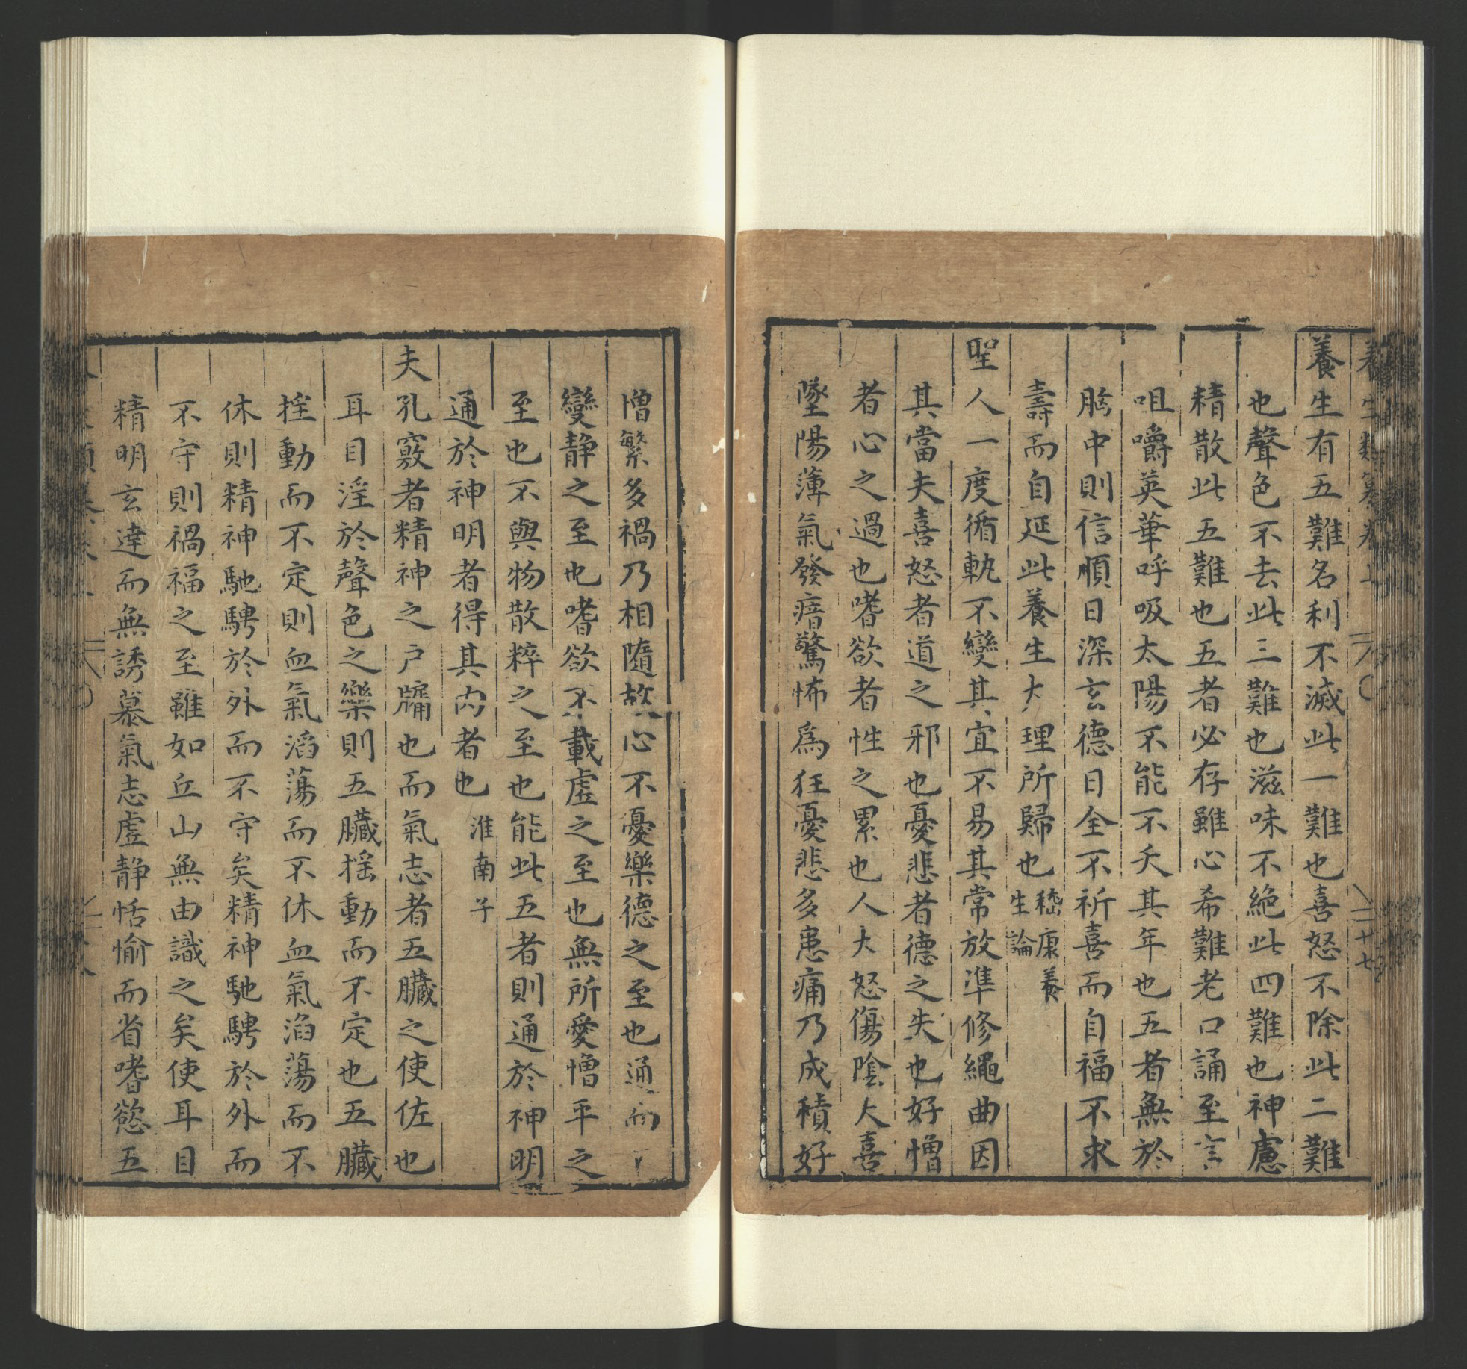 養生有五難名利不滅此一難也喜怒不除此二難
也聲色不去此三難也滋味不絶此四難也神慮
精散此五難也五者必存雖心希難老口誦至言
咀嚼英華呼吸太陽不能不夭其年也五者無於
胷中則信順日深玄德日全不祈喜而自福不求
壽而自延此養生大理所歸也嵇康養
生論
聖人一度循軌不變其宜不易其常放準修繩曲因
其當夫喜怒者道之邪也憂悲者德之失也好憎
者心之過也嗜欲者性之累也人大怒傷陰大喜
墜陽薄氣發瘖驚怖爲狂憂悲多恚痛乃成積好
憎繁多禍乃相隨故心不憂樂德之至也通而
變静之至也嗜欲不載虚之至也無所愛憎平之
至也不與物散粹之至也能此五者則通於神明
通於神明者得其内者也淮南子
夫孔竅者精神之户牖也而氣志者五臟之使佐也
耳目淫於聲色之樂則五臟揺動而不定也五臟
揺動而不定則血氣滔蕩而不休血氣滔蕩而不
休則精神馳騁於外而不守矣精神馳騁於外而
不守則禍福之至雖如丘山無由識之矣使耳目
精明玄達而無誘慕氣志虚静恬愉而省嗜慾五